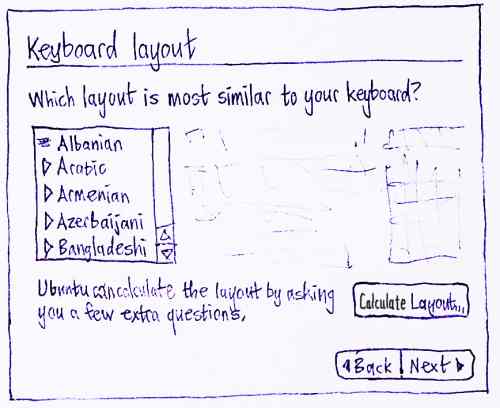 Keyboard layout
Which layout is most similar to your keyboard?
Albanian
Arabic
Armenian
Azerbaijani
Bangladeshi
Ubuntu can calculate the layout by asking
you a few extra questions.
Calculate Layout...
Back Next